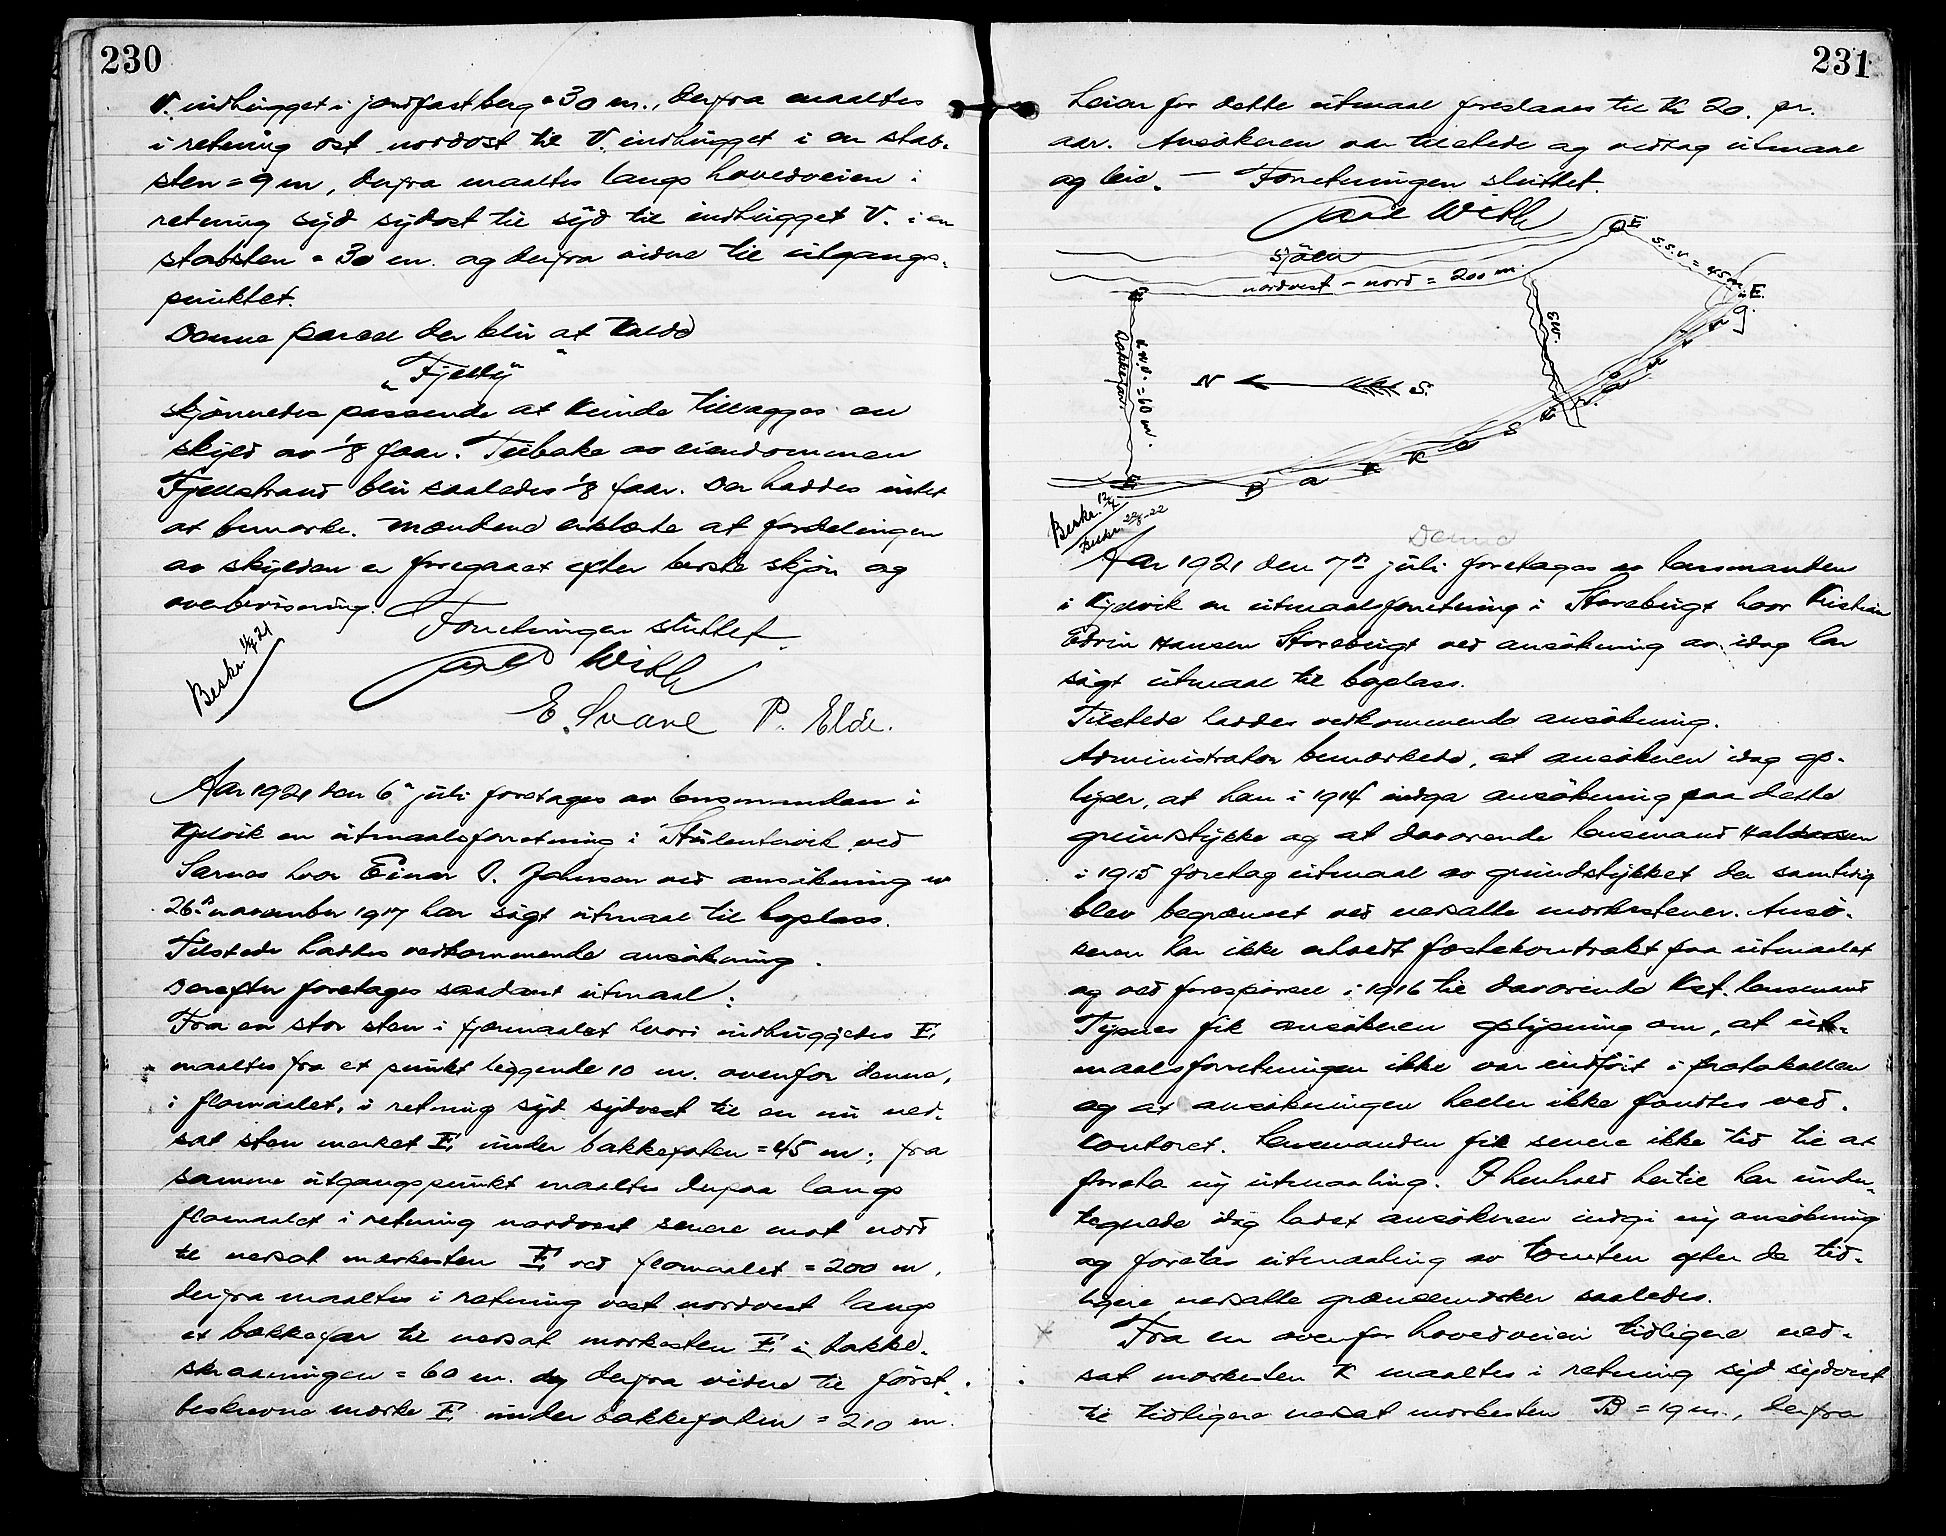 230
V. indhugget i jordfast berg = 30 m., derfra maaltes
i retning ost nordost til V. indhugget i en stab-
sten = 9 m, derfra maaltes langs hovedveien i
retning syd sydost til syd til indhugget V. i en
stabsten = 30 m. og derfra videre til utgangs-
punktet.
Denne parcel der blir at kalde
"Fjelly"
skjønnedes passende at kunde tillægges en
skyld av 1/8 faar. Tilbake av eiendommen
Fjellstrand blir saaledes 1/8 faar. Der haddes intet
at bemerke. Mændene erklærte at fordelingen
av skylden er foregaaet efter bedste skjøn og
overbevisning.
Forretningen sluttet.
Carl With
E. Svane P. Elde.
Beskr. 21
Aar 1921 den 6te juli foretages av lensmanden i
Kjelvik en utmaalsforretning i ved
Sarnes hvor Einar O. Johnsen ved ansökning av
26de november 1917 har sögt utmaal til boplass.
Tilstede haddes vedkommende ansökning.
Derefter foretages saadant utmaal:
Fra en stor sten i fjæremaalet hvori indhuggjedes E.
maaltes fra et punkt liggende 10 m. ovenfor denne,
i flomaalet, i retning syd sydvest til en nu ned-
sat sten merket E. under bakkefoten = 45 m; fra
samme utgangspunkt maaltes derfra langs
flomaalet i retning nordvest senere mot nord
til nedsat merkesten E. ved flomaalet = 200 m,
derfra maaltes i retning vest nordvest langs
et bækkefar til nedsat merkesten E. i bakke-
skraaningen = 60 m. og derfra videre til först-
beskrevne merke E. under bakkefoten = 210 m.
231
Leien for dette utmaal foreslaaes til Kr 20. pr.
aar. Ansökeren var tilstede og vedtog utmaal
og leie. — Forretningen sluttet.
Carl With
E
Sjöen
S.S.V = 45 m
nordvest - nord = 200 m.
E.
V.N.V. = 60 m.
Bækkefar
N S.
B a k k e s k r
Beskr. 12/4
22/8-22
Denne
Aar 1921 den 7de juli foretages av lensmanden
i Kjelvik en utmaalsforretning i Storebugt hvor Kristian
Edvin Hansen Storebugt ved ansökning av idag har
sögt utmaal til boplass.
Tilstede haddes vedkommende ansökning.
Administrator bemerkede, at ansökeren idag op-
lyser, at han i 1914 indga ansökning paa dette
grundstykke og at daværende lensmand Haldorsen
i 1915 foretog utmaal av grundstykket der samtidig
blev begrænset ved nedsatte merkestener. Ansö-
keren har ikke erholdt fæstekontrakt paa utmaalet
og ved forespørsel i 1916 til daværende Kst. lensmand
fik ansökeren oplysning om, at ut-
maalsforretningen ikke var indfört i protokollen
og at ansökningen heller ikke fandtes ved
kontoret. Lensmanden fik senere ikke tid til at
foreta ny utmaaling. I henhold hertil har under-
tegnede idag ladet ansökeren indgi ny ansökning
og foretar utmaaling av tomten efter de tid-
ligere nedsatte grænsemerker saaledes.
Fra en ovenfor hovedveien tidligere ned-
sat merkesten K maaltes i retning syd sydvest
til tidligere nedsat merkesten B = 19 m., derfra